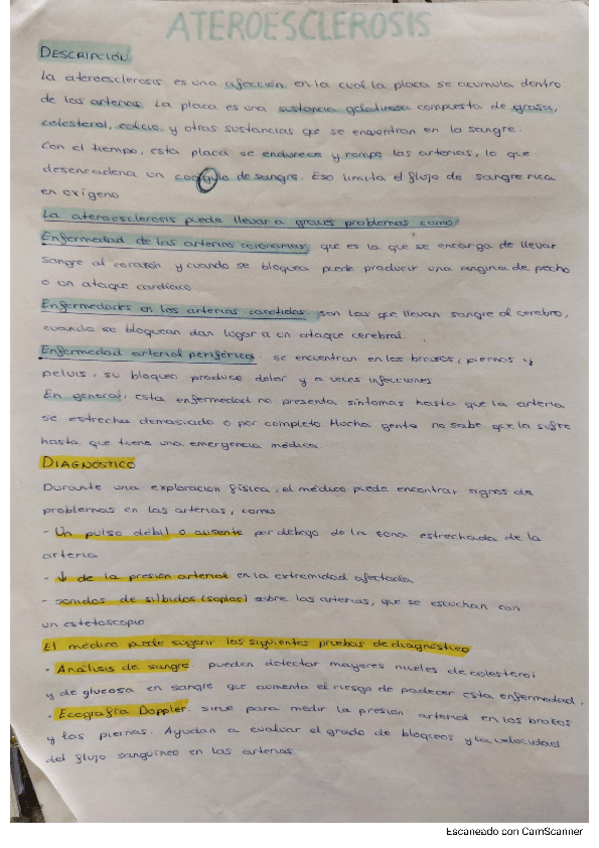 ATEROESCLEROSIS
DESCRIPCIÓN
La ateroesclerosis es una afección en la cual la placa se acumula dentro
de las arterias. La placa es una sustancia gelatinosa compuesta de grasa,
colesterol, calcio y otras sustancias que se encuentran en la sangre.
Con el tiempo, esta placa se endurece y rompe las arterias, lo que
desencadena un coagulo de sangre. Eso limita el flujo de sangre rica
en oxígeno
La ateroesclerosis puede llevar a graves problemas como:
Enfermedad de las arterias coronarias, que es la que se encarga de llevar
sangre al corazón y cuando se bloquea puede producir una angina de pecho
o un ataque cardíaco
Enfermedades en las arterias carotidas: son las que llevan sangre al cerebro,
cuando se bloquean dan lugar a un ataque cerebral.
Enfermedad arterial periférica: se encuentran en los brazos, piernas y
pelvis, su bloqueo produce dolor y a veces infecciones
En general, esta enfermedad no presenta síntomas hasta que la arteria
se estrecha demasiado o por completo. Mucha gente no sabe que la sufre
hasta que tiene una emergencia médica
DIAGNÓSTICO
Durante una exploracion física, el médico puede encontrar signos de
problemas en las arterias, como
- Un pulso débil o ausente por debajo de la zona estrechada de la
arteria
- ↓ de la presion arterial en la extremidad afectada
- sonidos de silbidos (soplos) sobre las arterias, que se escuchan con
un estetoscopio
El médico puede sugerir los siguientes pruebas de diagnóstico
- Análisis de sangre. pueden detectar mayores niveles de colesterol
y de glucosa en sangre que aumenta el riesgo de padecer esta enfermedad.
- Ecografía Doppler. sirve para medir la presion arterial en los brazos
y las piernas. Ayudan a evaluar el grado de bloqueos y la velocidad
del flujo sanguíneo en las arterias
Escaneado con CamScanner